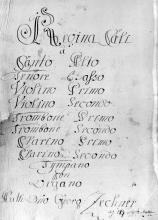 Regina Cæli
a
Canto Alto
Tenore Basso
Violino Primo
Violino Secondo
Trombone Primo
Trombone Secondo
Clarino Primo
Clarino Secondo
Tympano
con
Organo
Georg Zechner